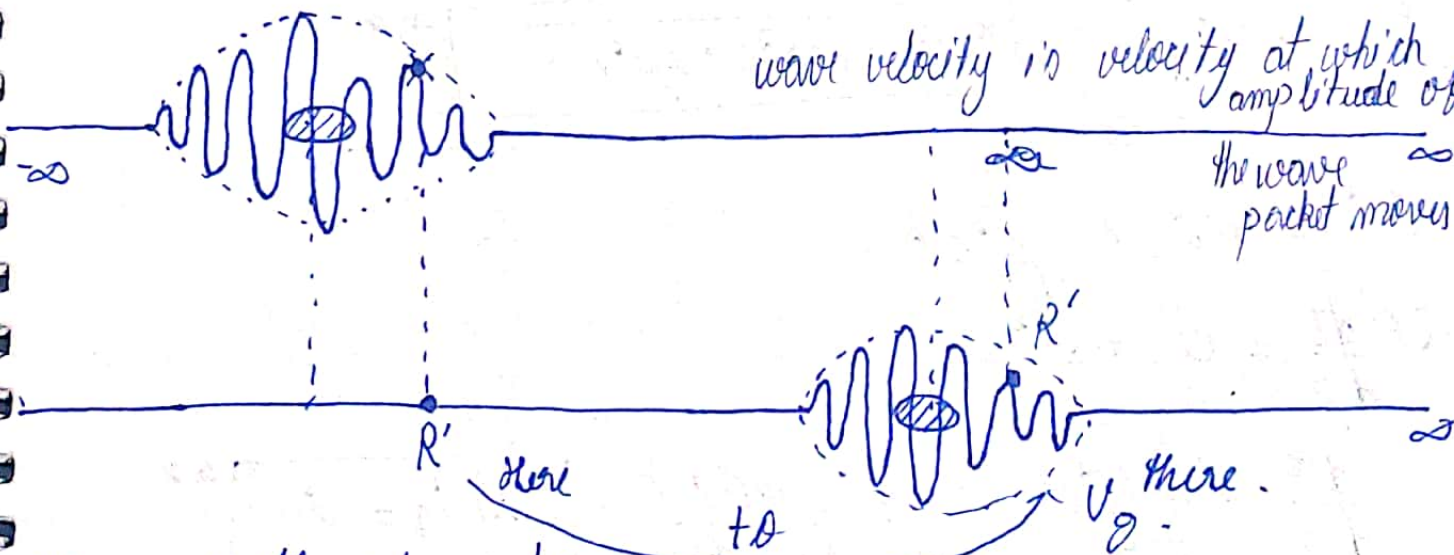 wave velocity is velocity at which
amplitude of
-∞
∞
the wave
packet moves
R'
R'
Here
there.
to
Vg.
∞